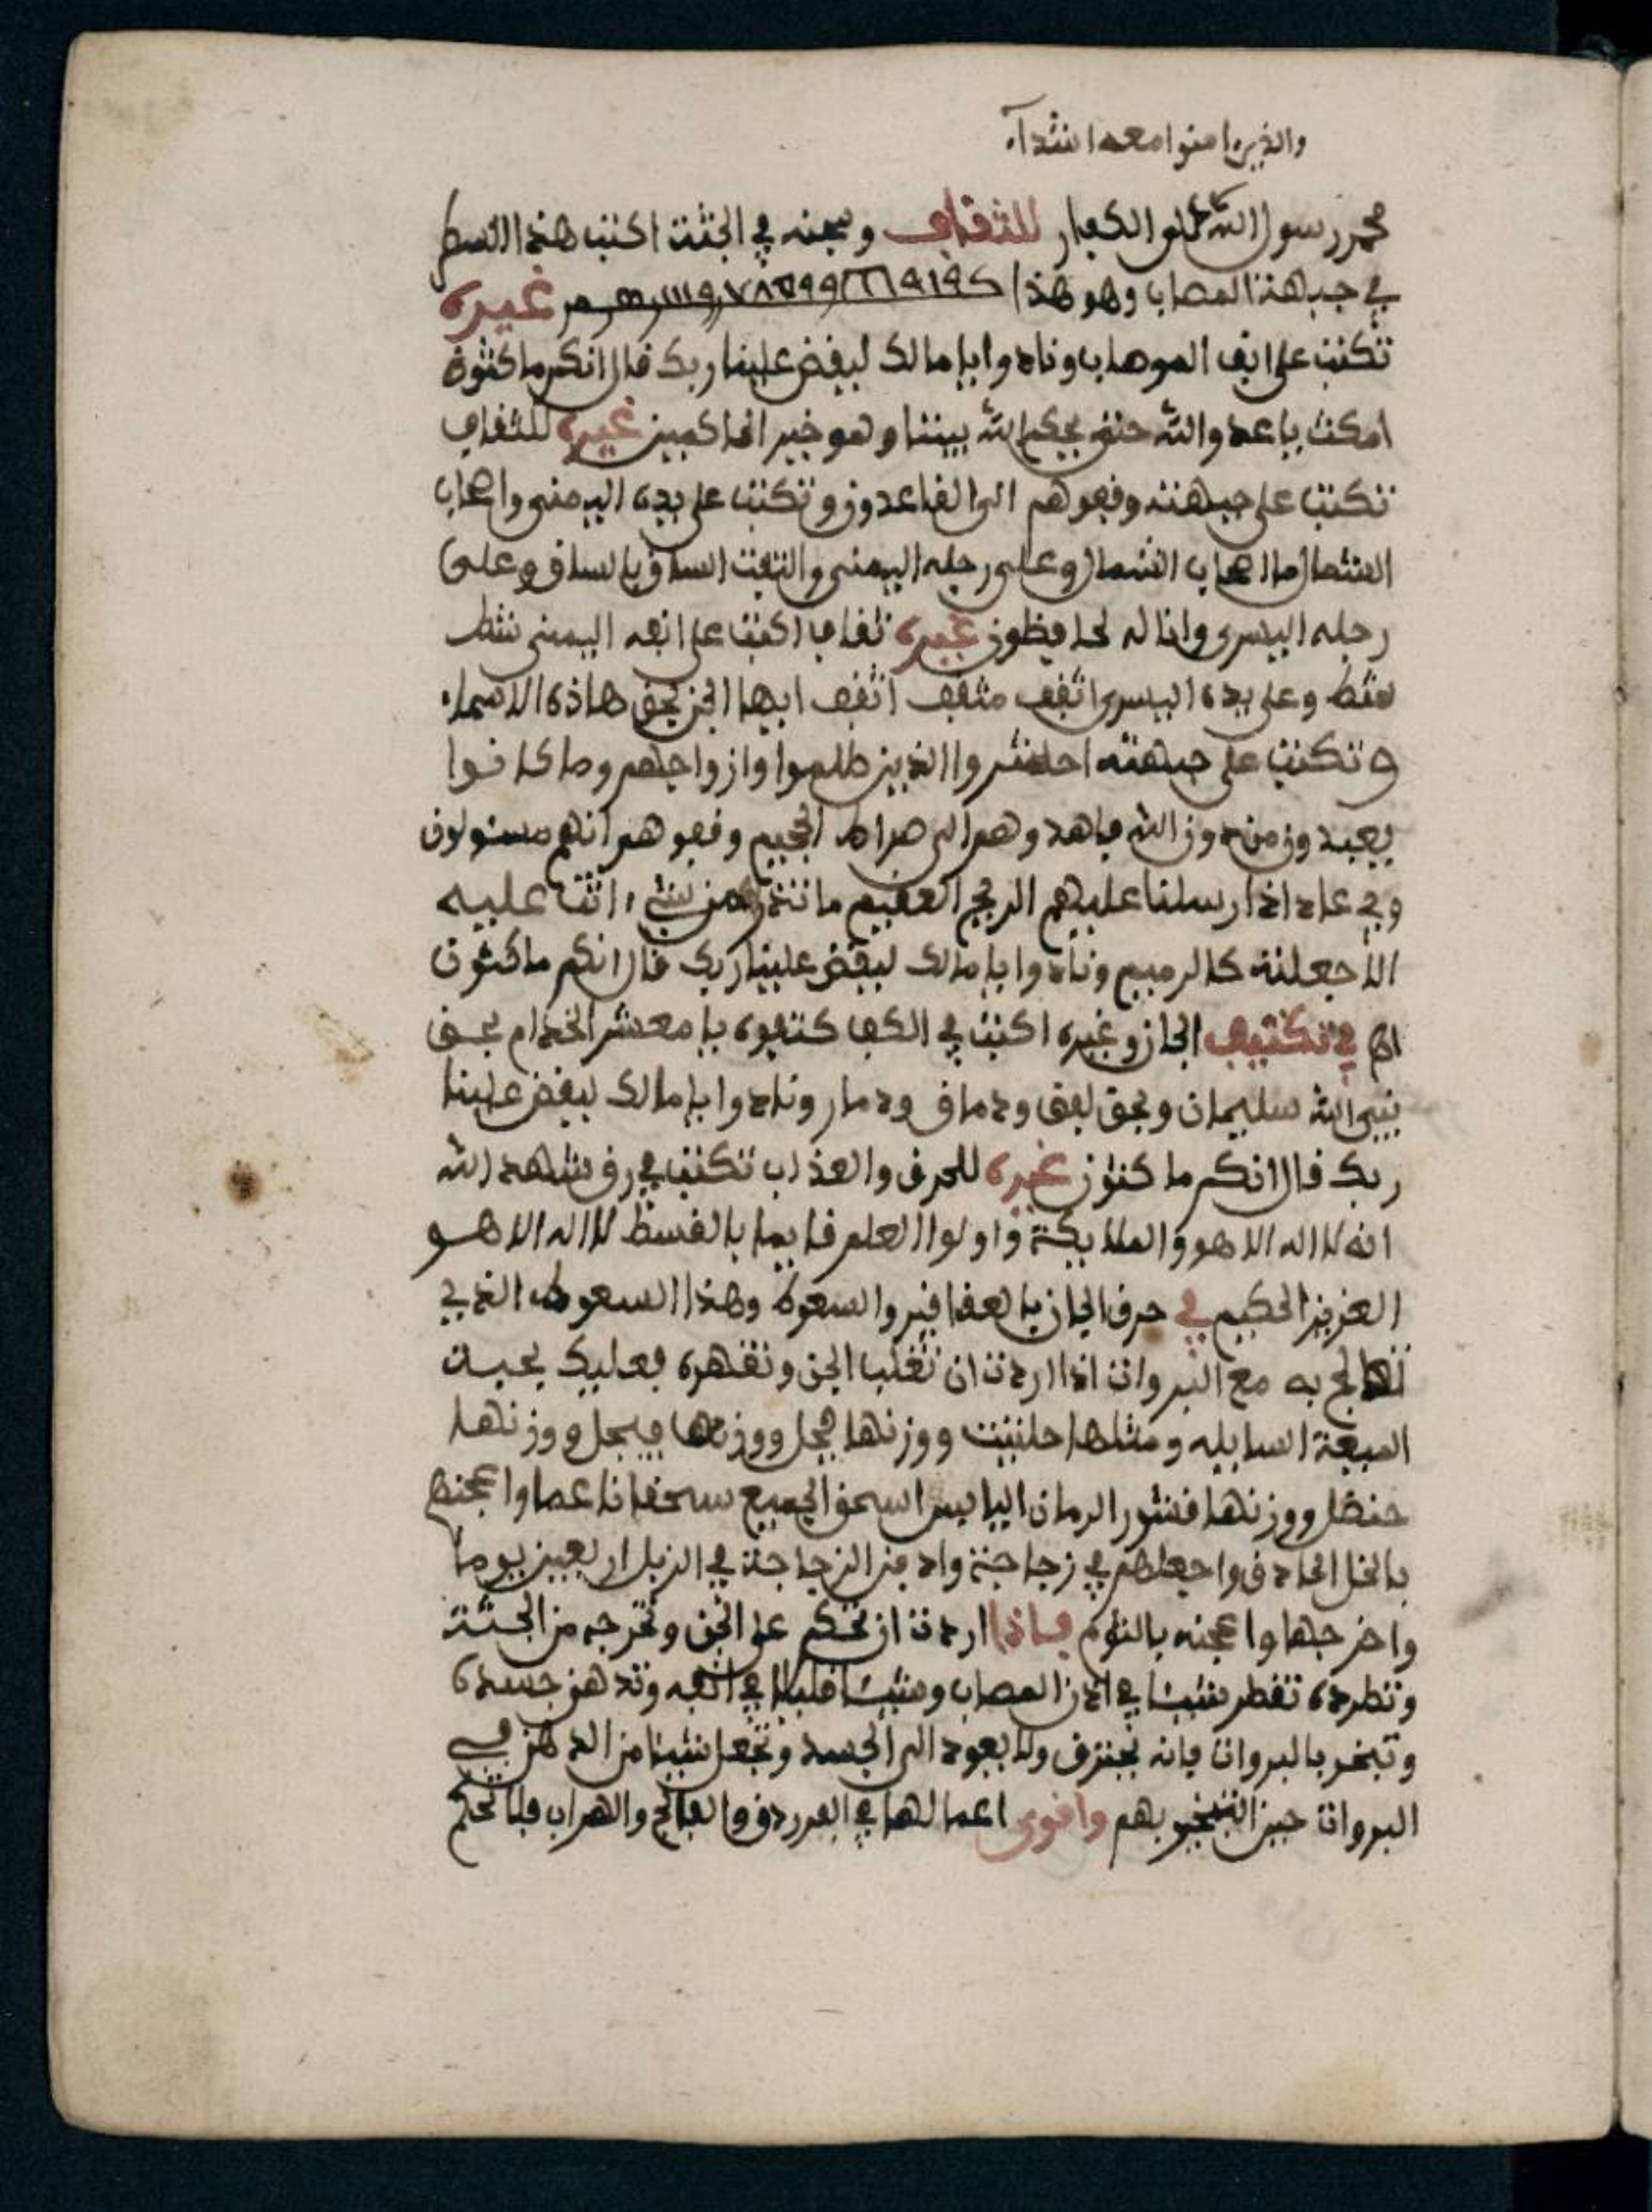 والذين امنوا معه اشدآء
محمد رسول الله على الكفار للثقاف وسجنه في الجثت اكتب هذا السطر
في جبهة المصاب وهو هذا غيره
تكتب على انف الموصاب ونادوا يا مالك ليقض علينا ربك قال انكم ماكثون
امكث يا عدو الله حتى يحكم الله بيننا وهو خير الحاكمين غيره للثقاف
تكتب على جبهته وقفوهم الى القاعدون وتكتب على يده اليمنى واصحاب
الشمال ما اصحاب الشمال وعلى رجله اليمنى والتفت الساق بالساق وعلى
رجله اليسرى وانا له لحافظون غيره ثقاف اكتب على انفه اليمنى شطب
وعلى يده اليسرى اثقف مثقف اثقف ايها الجن بحق هاذه الاسماء
وتكتب على جبهته احشروا الذين ظلموا وازواجهم وما كانوا
يعبدون من دون الله فاهدوهم الى صراط الجحيم وقفوهم انهم مسئولون
وفي عاد اذ ارسلنا عليهم الريح العقيم ما تذر من شيء اتت عليه
الا جعلته كالرميم ونادوا يا مالك ليقض علينا ربك قال انكم ماكثون
في تكتيف الجان وغيره اكتب في الكف كتفوه يا معشر الخدام بحق
نبي الله سليمان وبحق ونادوا يا مالك ليقض علينا
ربك قال انكم ماكثون غيره للحرق والعذاب تكتب في رق شهد الله
انه لا اله الا هو والملايكة واولوا العلم قايما بالقسط لا اله الا هو
العزيز الحكيم في حرق الجان بالعقاقير والسعوط وهذا السعوط الذي
تعالج به مع البروات اذا اردت ان تغلب الجن وتقهره فعليك بحبت
الميعة السايله ومثلها حلتيت ووزنها فجل ووزنها فيجل ووزنها
حنضل ووزنها قشور الرمان اليابس اسحق الجميع سحقا ناعما واعجنهم
بالخل الحادق واجعلهم في زجاجة وادفن الزجاجة في الزبل اربعين يوما
واخرجها واعجنه بالثوم فاذا اردت ان تحكم على الجن وتخرجه من الجثة
وتطرده تقطر شيئا في اذن المصاب وشيئا قليلا في انفه وتدهن جسده
وتبخر بالبروات فانه يحترق ولا يعود الى الجسد وتجعل شيئا من الدهن في
البروات حين التبخير بهم واقوى اعمالها في القرد والفالج والهراب فلا تحكم